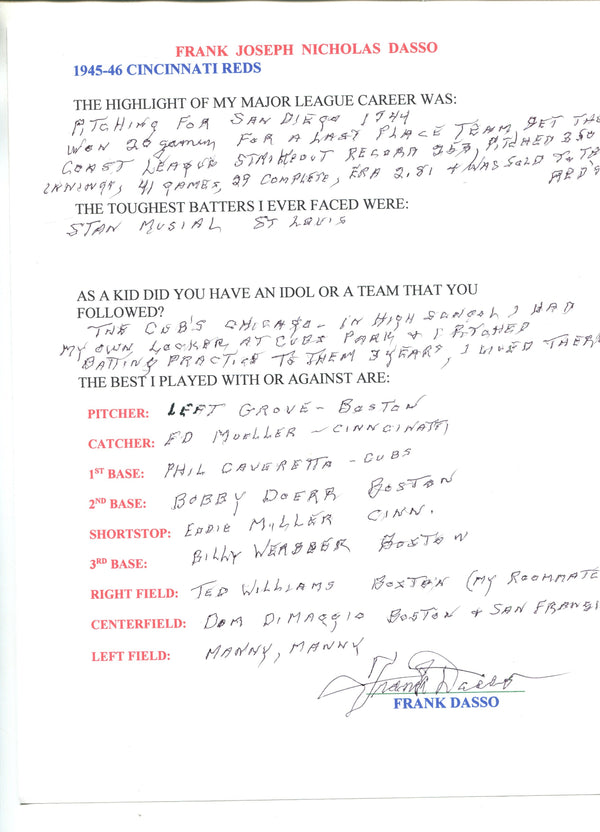 FRANK JOSEPH NICHOLAS DASSO
1945-46 CINCINNATI REDS
THE HIGHLIGHT OF MY MAJOR LEAGUE CAREER WAS:
PITCHING FOR SAN DIEGO 1944
WON 20 games FOR A LAST PLACE TEAM, SET THE
COAST LEAGUE STRIKEOUT RECORD 253, PITCHED 350
INNINGS, 41 GAMES, 29 COMPLETE, ERA 2.81 + WAS SOLD TO THE
RED'S
THE TOUGHEST BATTERS I EVER FACED WERE:
STAN MUSIAL ST LOUIS
AS A KID DID YOU HAVE AN IDOL OR A TEAM THAT YOU
FOLLOWED?
THE CUB'S CHICAGO - IN HIGH SCHOOL I HAD
MY OWN LOCKER AT CUBS PARK + I PITCHED
BATTING PRACTICE TO THEM 3 YEARS, I LIVED THERE
THE BEST I PLAYED WITH OR AGAINST ARE:
PITCHER: LEFT GROVE - BOSTON
CATCHER: ED MUELLER - CINNCINATTI
1ST BASE: PHIL CAVERETTA - CUBS
2ND BASE: BOBBY DOERR BOSTON
SHORTSTOP: EDDIE MILLER CINN.
3RD BASE: BILLY WERBBER BOSTON
RIGHT FIELD: TED WILLIAMS BOSTON (MY ROOMMATE
CENTERFIELD: DOM DIMAGGIO BOSTON + SAN FRANSI
LEFT FIELD: MANNY, MANNY
Frank Dasso
FRANK DASSO